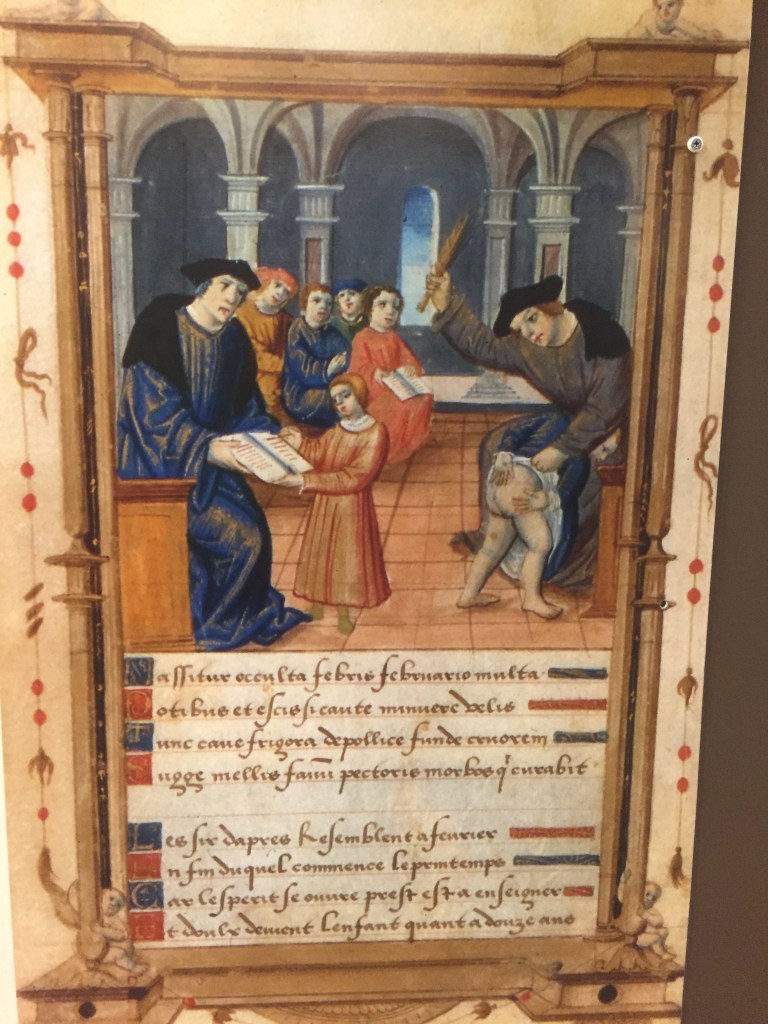 Nassitur occulta febris februario multa
Potibus et escis si caute minuere velis
Tunc cave frigora de pollice funde cruorem
Sugge mellis favum pectoris morbos q̇ curabit
Les six dapres Resemblent a feurier
En fin duquel commence le printemps
Car lesperit se ouvre prest est a enseigner
Et doulx devient lenfant quant a douze ans